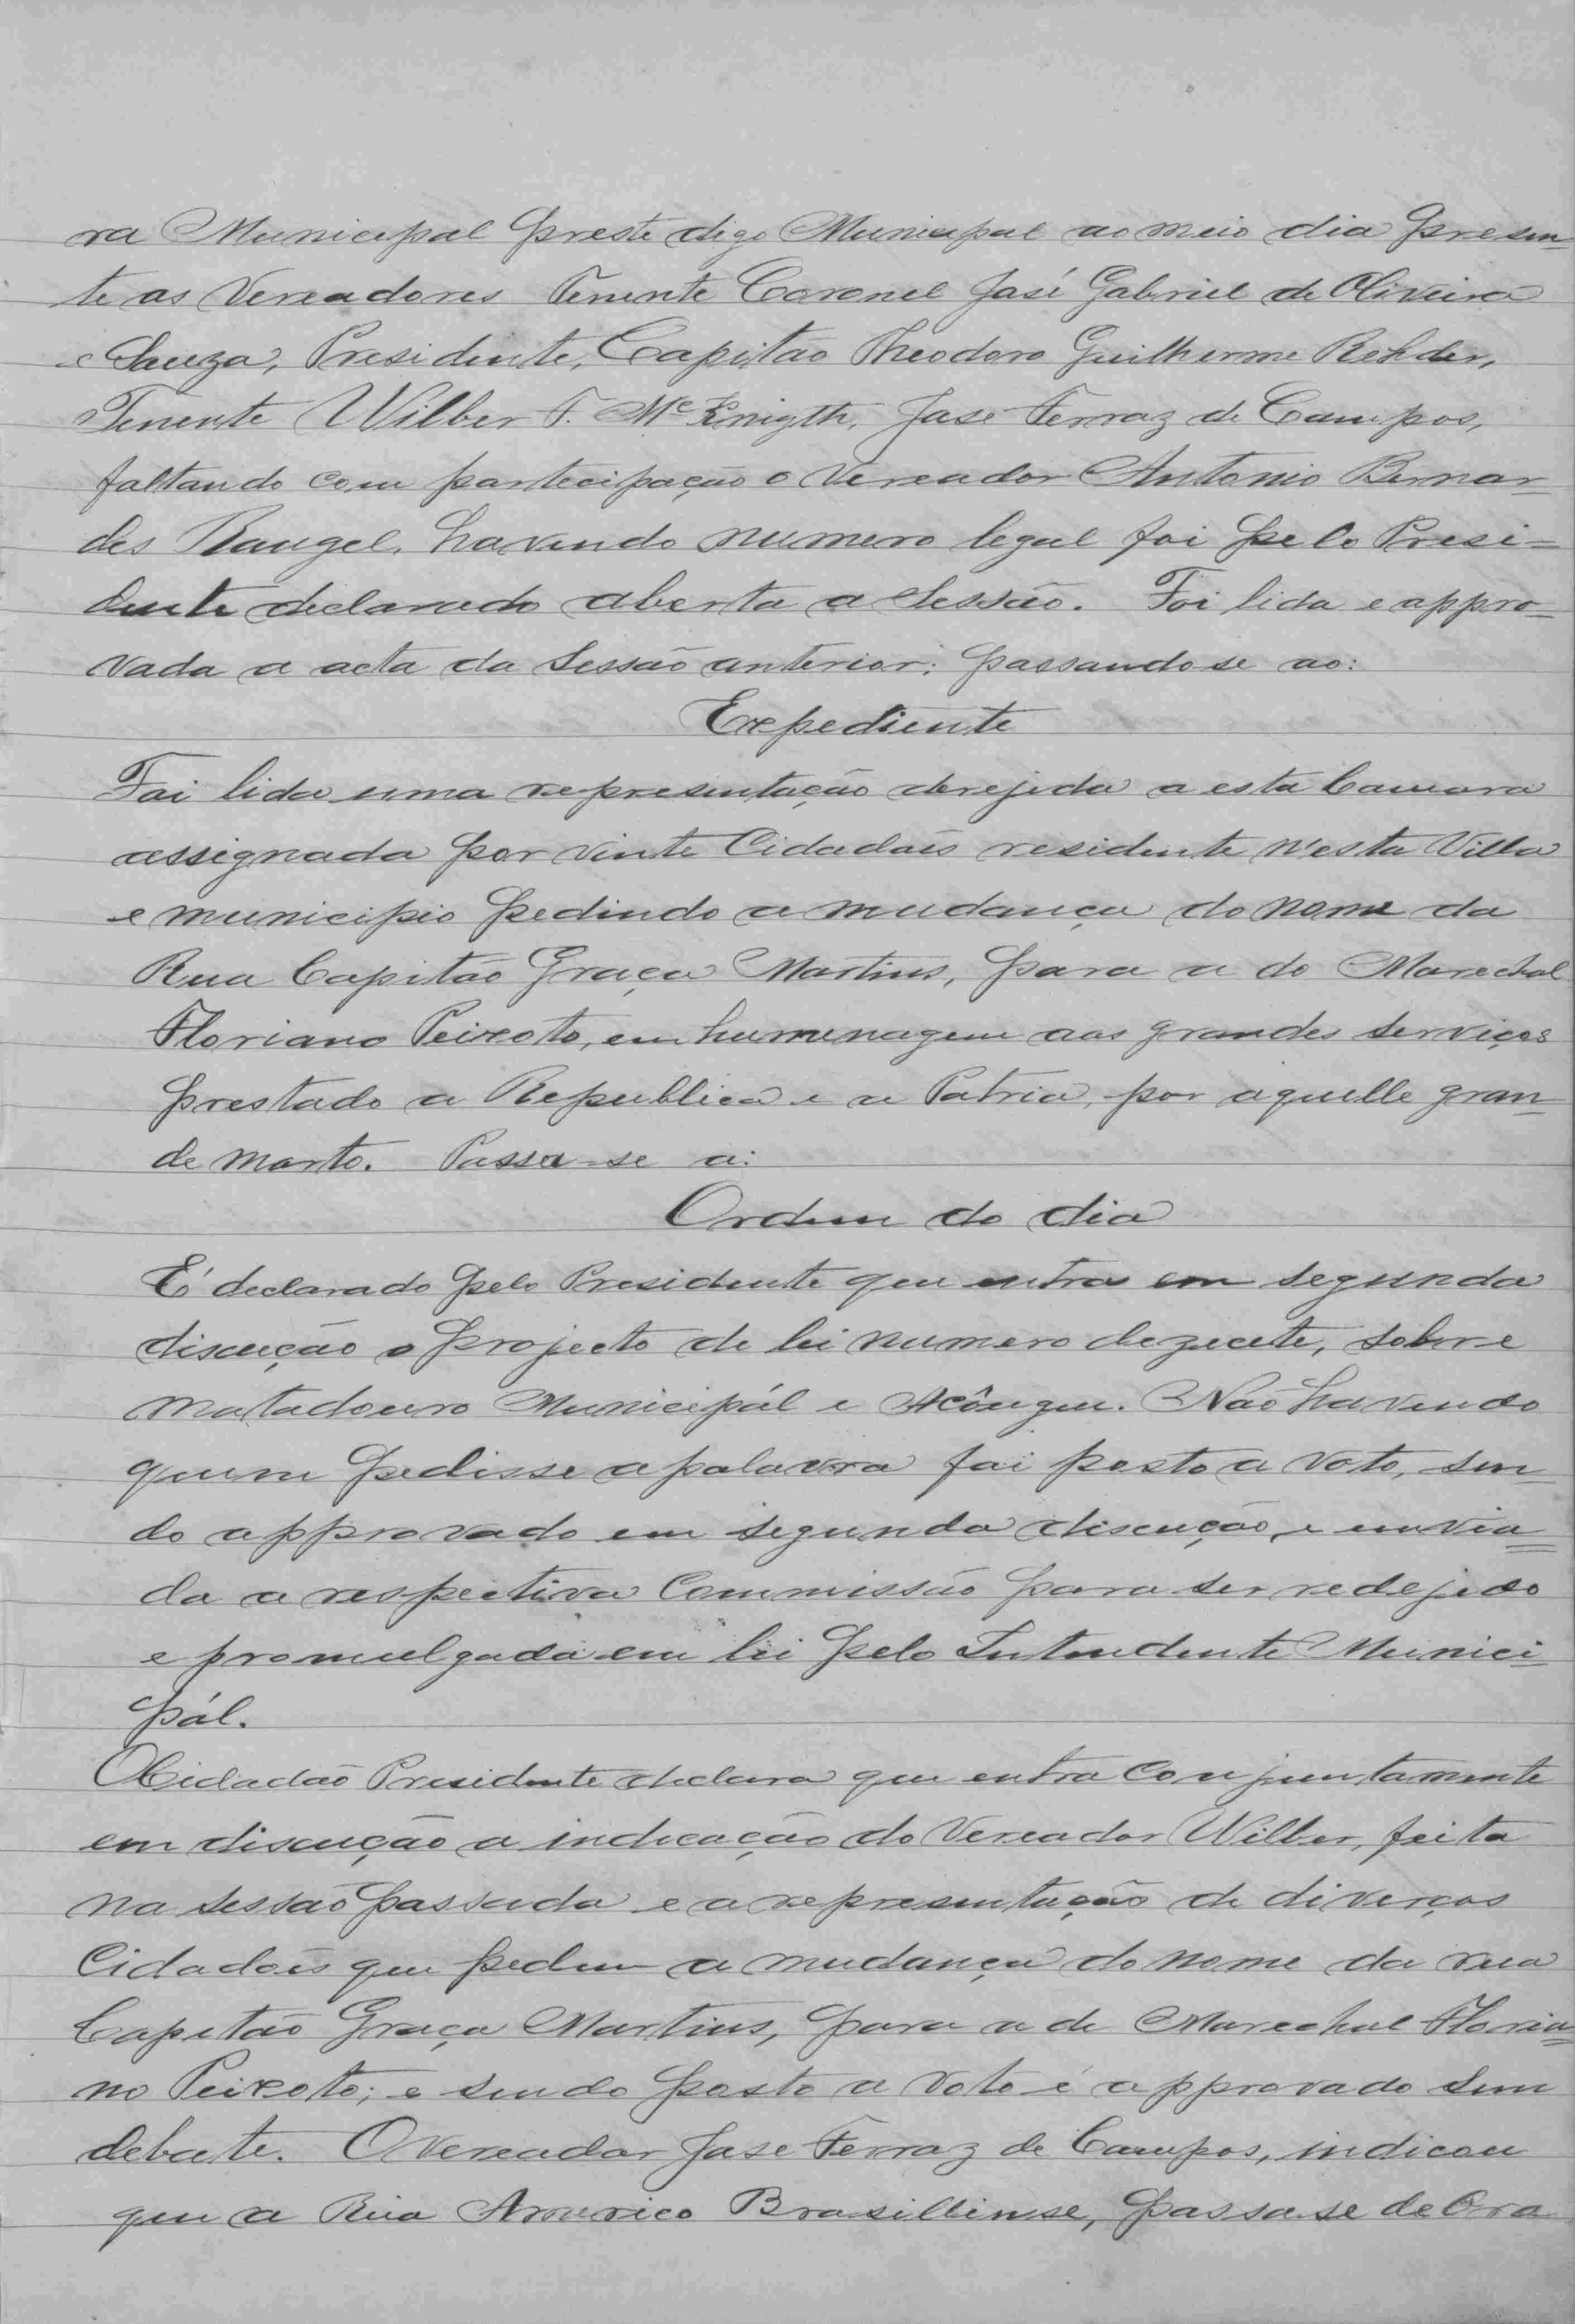 ra Municipal preste digo Municipal ao meio dia presen-
te as Vereadores Tenente Coronel José Gabriel de Oliveira
e Souza, Presidente, Capitão Theodoro Guilherme Rehder,
Tenente Wilber F. Mc Knigth, Jose Ferraz de Campos,
faltando com partecipação o Vereador Antonio Bernar-
des Rangel, havendo numero legal foi pelo Presi=
dente declarado aberta a Sessão. Foi lida e appro=
vada a acta da Sessão anterior; passando-se ao:
Expediente
Foi lida uma representação derejida a esta Camara
assignada por vinte Cidadãis residente n'esta Villa
e municipio pedindo a mudança do nome da
Rua Capitão Graça Martins, para a do Marechal
Floriano Peixoto, em humenagem aos grandes serviços
prestado a Republica e a Patria, por aquelle gran=
de morto. Passa-se a:
Ordem do dia
É declarado pelo Presidente que entra em segunda
discução o projecto de lei numero dezecete, sobre
Matadouro Municipál e Acôugue. Não havendo
quem pedisse a palavra foi posto a voto, sen=
do approvado em segunda discução, e envia=
da a respectiva Commissão para ser redejido
e promulgada em lei pelo Intendente Munici=
pál.
O Cidadão Presidente declara que entra conjuntamente
em discução a indicação do Vereador Wilber, feita
na sessão passada e a representação de diverços
Cidadões que pedem a mudança do nome da rua
Capitão Graça Martins, para a de Marechal Floria=
no Peixoto; e sendo posto a voto é approvado sem
debate. O Vereador Jose Ferraz de Campos, indicou
que a Rua Amerrico Brasilliense, passa-se de Ora